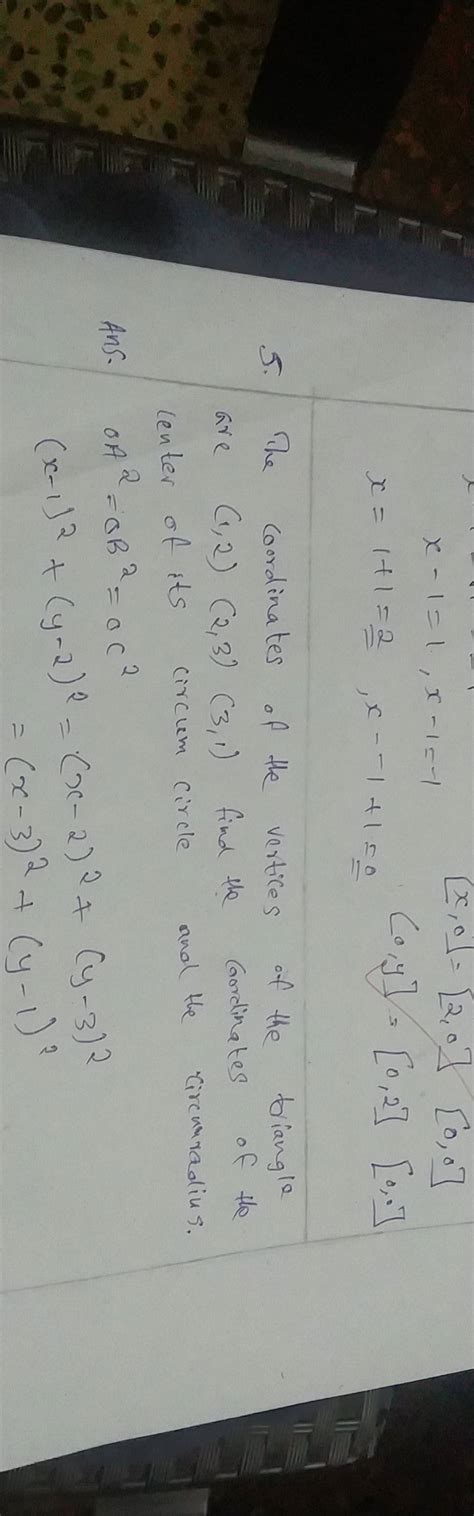 x - 1 = 1 , x - 1 = -1
[x,0] = [2,0] [0,0]
x = 1+1 = 2 , x - -1 + 1 = 0
(0,y] = [0,2] [0,0]
5. The coordinates of the vertices of the triangle
are (1,2) (2,3) (3,1) find the coordinates of the
center of its circum circle and the circumradius.
Ans. OA² = OB² = OC²
(x-1)² + (y-2)² = (x-2)² + (y-3)²
= (x-3)² + (y-1)²